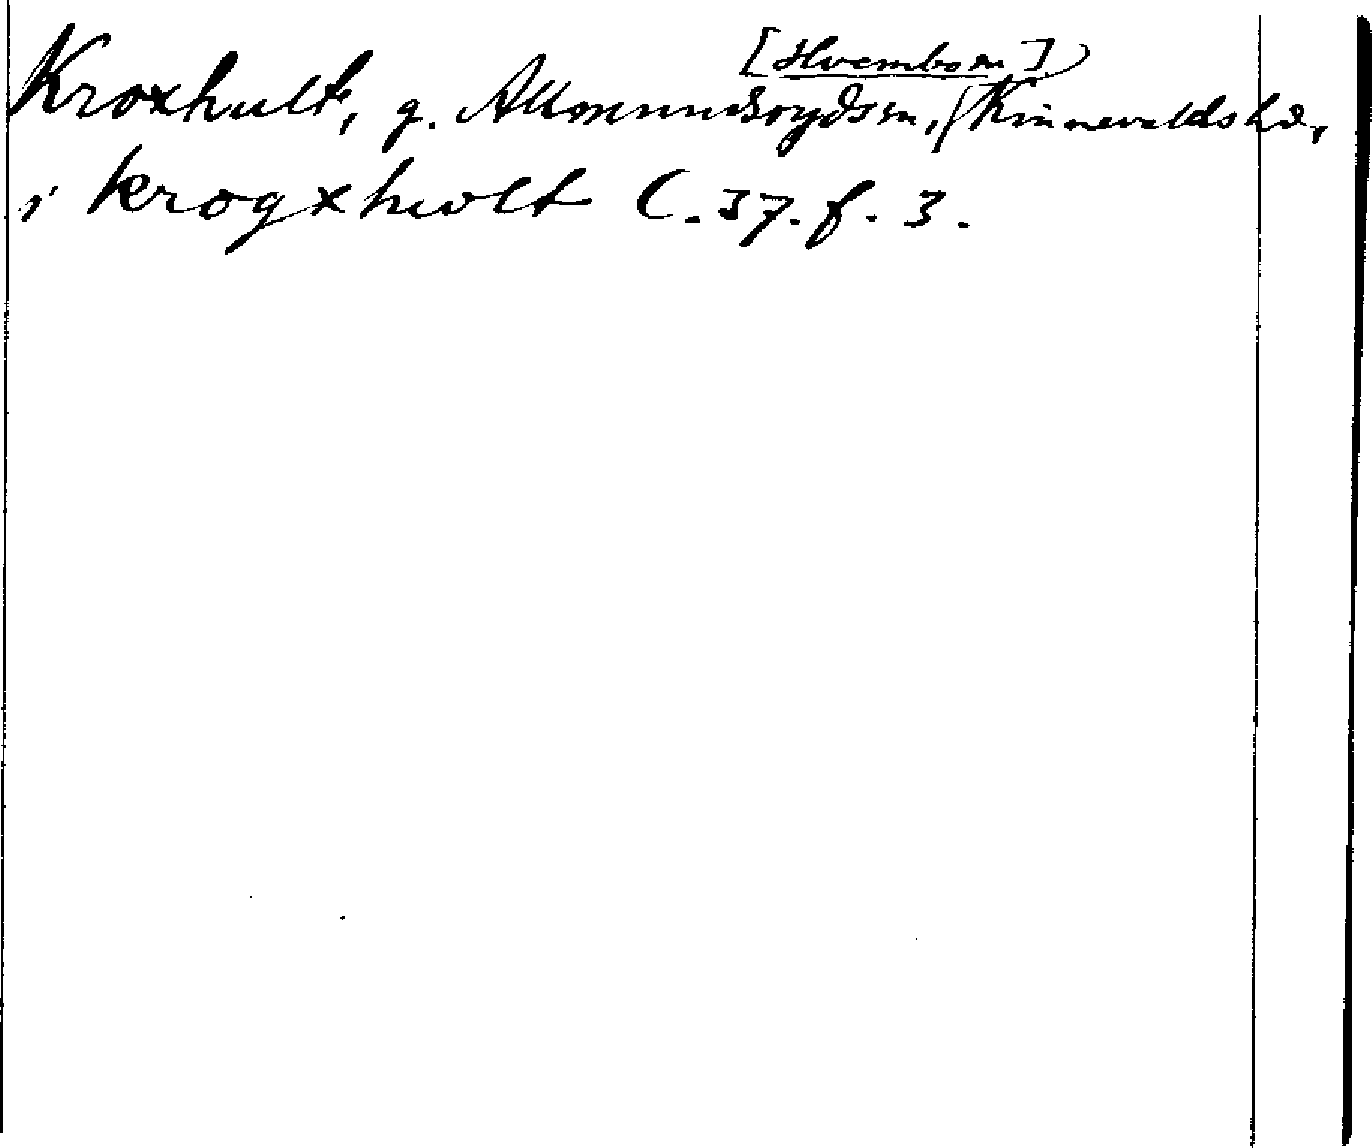 [Hvembo sn]
Kroxhult, g. Allmundsryds sn, Kinnevalds hd,
i krogxhwlt C. 37. f. 3.